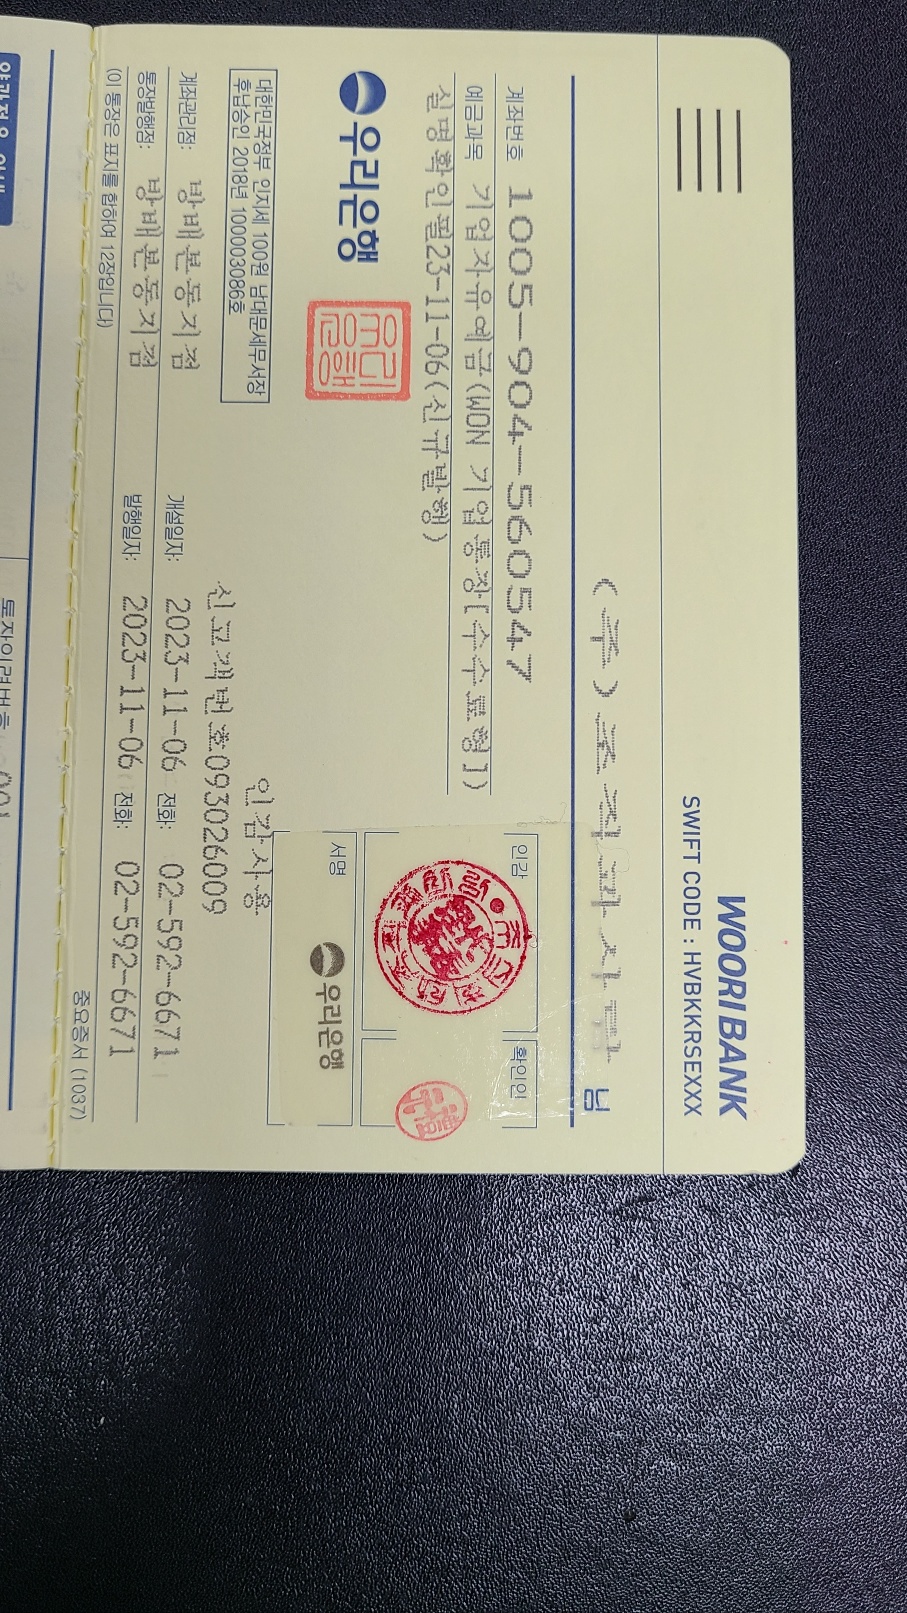 WOORI BANK
SWIFT CODE : HVBKKRSEXXX
(주)조직의사부 님
계좌번호 1005-904-560547
예금과목 기업자유예금(WON 기업통장[수수료형])
실명확인필23-11-06(신규발행)
인감
확인인
서명
우리은행
우리은행
인감사용
대한민국정부 인지세 100원 남대문세무서장
후납승인 2018년 100003086호
신고계번호:093026009
계좌관리점: 방배본동지점 개설일자: 2023-11-06 전화: 02-592-6671
통장발행점: 방배본동지점 발행일자: 2023-11-06 전화: 02-592-6671
(이 통장은 표지를 합하여 12장입니다)
중요증서(1037)